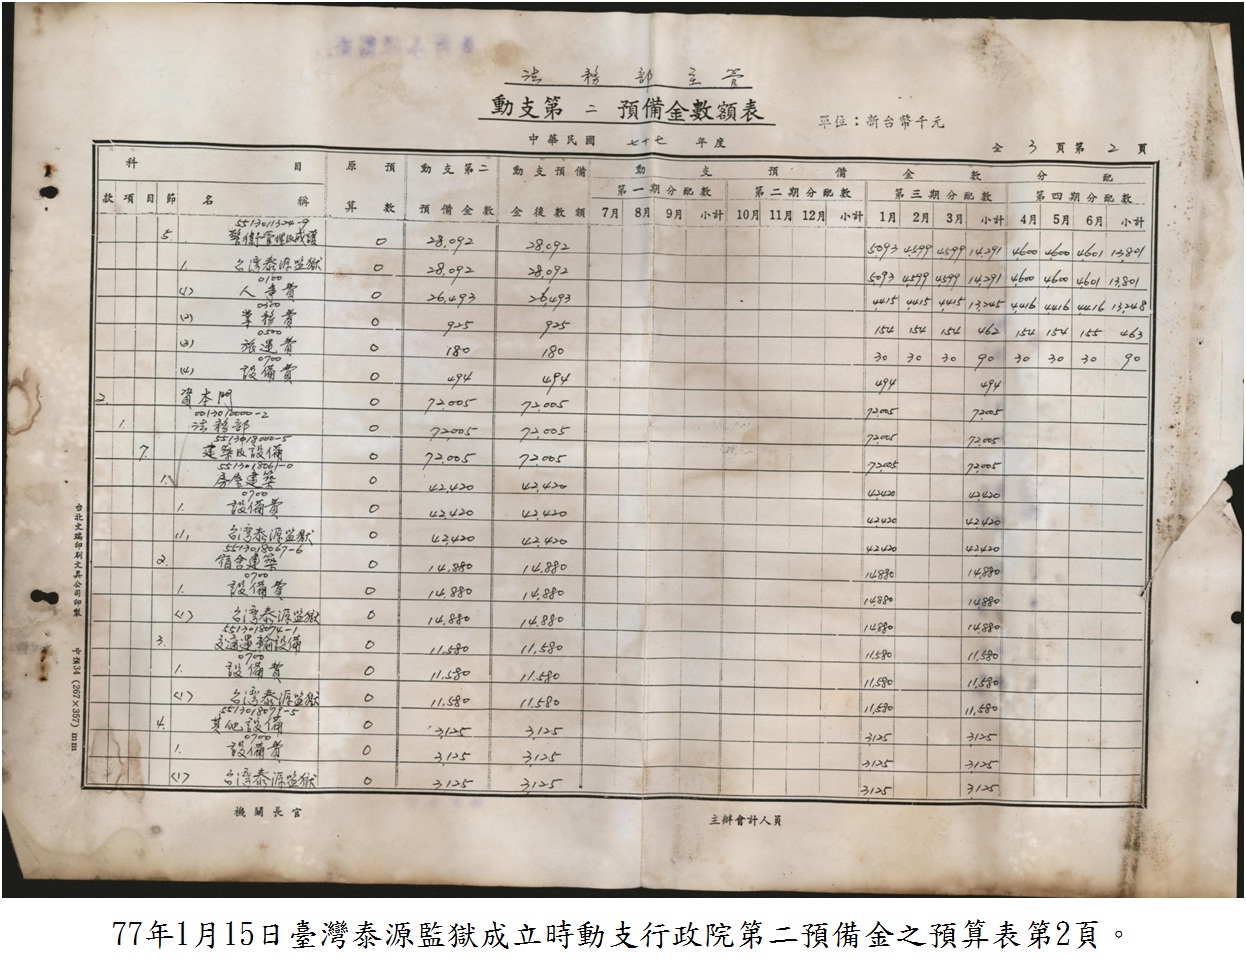 法務部主管
動支第二預備金數額表
單位：新台幣千元
中華民國 七十七 年度
全 3 頁第 2 頁
科 目 原預算數 動支第二預備金數 動支預備金後數額 動支預備金數分配
款 項 目 節 名稱 第一期分配數 第二期分配數 第三期分配數 第四期分配數
7月 8月 9月 小計 10月 11月 12月 小計 1月 2月 3月 小計 4月 5月 6月 小計
5513011324-9
5. 警衛管理及戒護 0 28,092 28,092 5093 4599 4599 14,291 4600 4600 4601 13,801
1. 台湾泰源監獄 0 28,092 28,092 5093 4599 4599 14,291 4600 4600 4601 13,801
0100
(1) 人事費 0 26,493 26,493 4415 4415 4415 13,245 4416 4416 4416 13,248
0300
(2) 業務費 0 925 925 154 154 154 462 154 154 155 463
0500
(3) 旅運費 0 180 180 30 30 30 90 30 30 30 90
0700
(4) 設備費 0 494 494 494 494
2. 資本門 0 72,005 72,005 72,005 72,005
0013010000-2
1. 法務部 0 72,005 72,005 72,005 72,005
5513018000-5
7. 建築及設備 0 72,005 72,005 72,005 72,005
5513018061-0
1. 房屋建築 0 42,420 42,420 42,420 42,420
0700
1. 設備費 0 42,420 42,420 42,420 42,420
(1) 台湾泰源監獄 0 42,420 42,420 42,420 42,420
5513018067-6
2. 宿舍建築 0 14,880 14,880 14,880 14,880
0700
1. 設備費 0 14,880 14,880 14,880 14,880
(1) 台湾泰源監獄 0 14,880 14,880 14,880 14,880
5513018074-1
3. 交通運輸設備 0 11,580 11,580 11,580 11,580
0700
1. 設備費 0 11,580 11,580 11,580 11,580
(1) 台湾泰源監獄 0 11,580 11,580 11,580 11,580
4. 其他設備 0 3,125 3,125 3,125 3,125
0700
1. 設備費 0 3,125 3,125 3,125 3,125
(1) 台湾泰源監獄 0 3,125 3,125 3,125 3,125
機關長官
主辦會計人員
台北文瑞印刷文具公司印製
(267×357) mm
77年1月15日臺灣泰源監獄成立時動支行政院第二預備金之預算表第2頁。